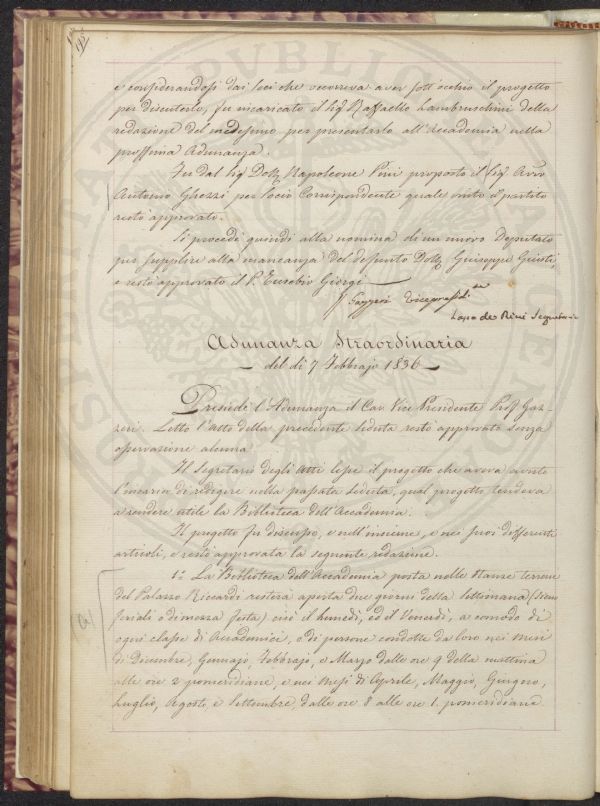 192
e considerandosi dai soci che occorreva aver sott'occhio il progetto
per discuterlo, fu incaricato il Sig.r Raffaello Lambruschini della
redazione del medesimo per presentarlo all'Accademia nella
prossima Adunanza.
Fu dal Sig. Dott. Napoleone Pini proposto il Sig. Avv.o
Antonio Ghezzi per Socio Corrispondente quale messo il partito
restò approvato.
Si procedè quindi alla nomina di un nuovo Deputato
per supplire alla mancanza del defunto Dott. Giuseppe Giusti,
e restò approvato il P. Eusebio Giorgi
Gazzeri Vicepresid.te
de Ricci Segretario
Adunanza Straordinaria
del dì 7 Febbrajo 1836
Presiedè l'Adunanza il Cav. Vice Presidente Prof. Gaz-
zeri. Letto l'atto della precedente seduta restò approvato senza
osservazione alcuna.
Il Segretario degli Atti lesse il progetto che aveva avuto
l'incarico di redigere nella passata seduta, qual progetto tendeva
a rendere utile la Biblioteca dell'Accademia.
Il progetto fu discusso, e nell'insieme, e nei suoi differenti
articoli, e restò approvata la seguente redazione.
1.o La Biblioteca dell'Accademia posta nelle stanze terrene
del Palazzo Riccardi resterà aperta due giorni della Settimana (siano
feriali o di mezza festa) cioè il lunedì, ed il Venerdì, a comodo di
ogni classe di Accademici, o di persone condotte da loro nei mesi
di Dicembre, Gennajo, Febbrajo, e Marzo dalle ore 9 della mattina
alle ore 2 pomeridiane, e nei mesi di Aprile, Maggio, Giugno,
Luglio, Agosto e Settembre, dalle ore 8 alle ore 1. pomeridiane